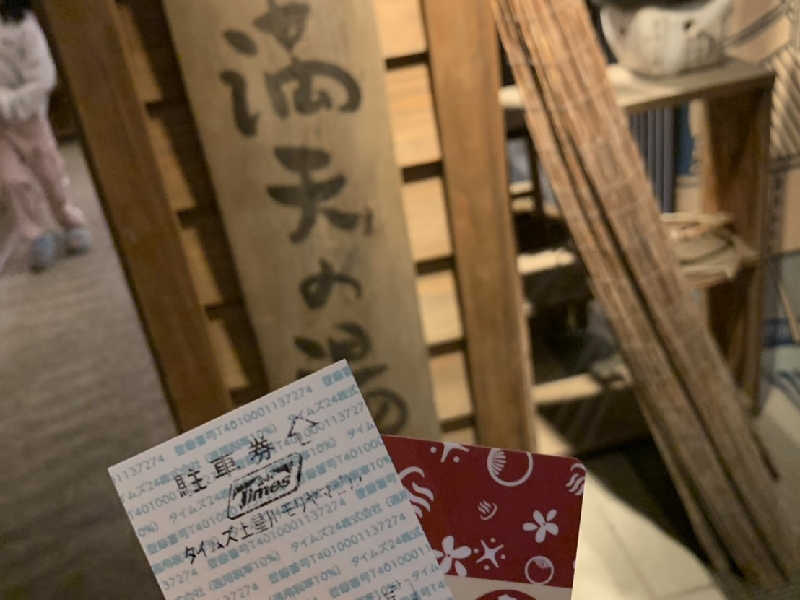 満天の湯
駐車券
Times
タイムズ上星川モリヤマ
登録番号T4010001137274
タイムズ24株式会社 (適用税率10%)